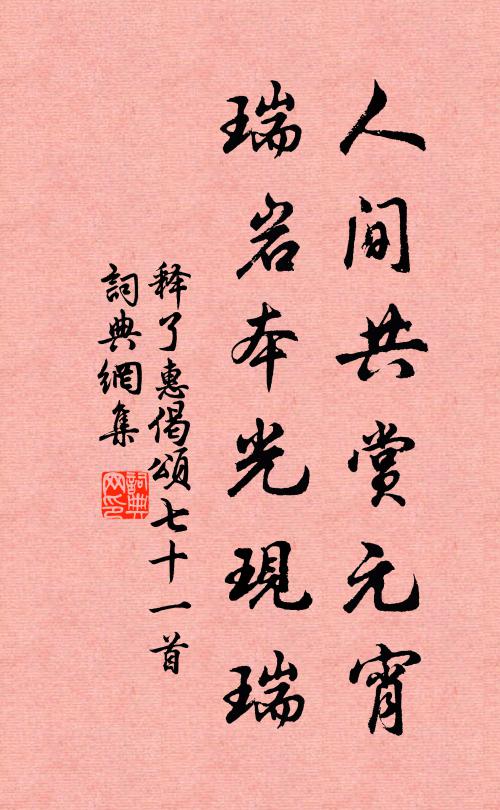 人间共赏元宵
瑞岩本光现瑞
释了惠偈颂七十一首
词典网集
词典网印